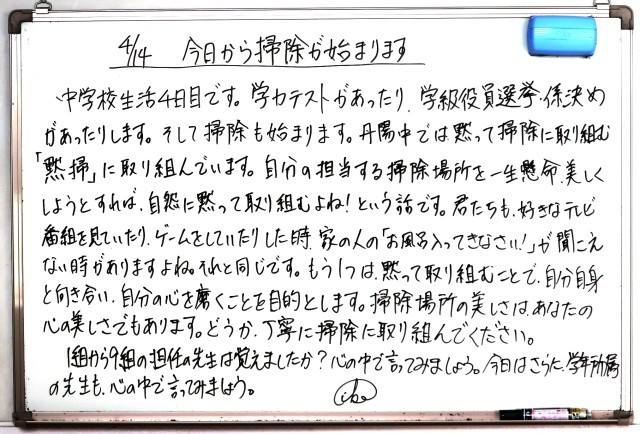 4/14 今日から掃除が始まります
中学校生活4日目です。学力テストがあったり、学級役員選挙・係決め
があったりします。そして掃除も始まります。丹陽中では黙って掃除に取り組む
「黙掃」に取り組んでいます。自分の担当する掃除場所を一生懸命、美しく
しようとすれば、自然に黙って取り組むよね!という話です。君たちも、好きなテレビ
番組を見ていたり、ゲームをしていたりした時、家の人の「お風呂入ってきなさい!」が聞こえ
ない時がありますよね。それと同じです。もう1つは、黙って取り組むことで、自分自身
と向き合い、自分の心を磨くことを目的とします。掃除場所の美しさは、あなたの
心の美しさでもあります。どうか、丁寧に掃除に取り組んでください。
1組から9組の担任の先生は覚えましたか?心の中で言ってみましょう。今日はさらに、学年所属
の先生も、心の中で言ってみましょう。